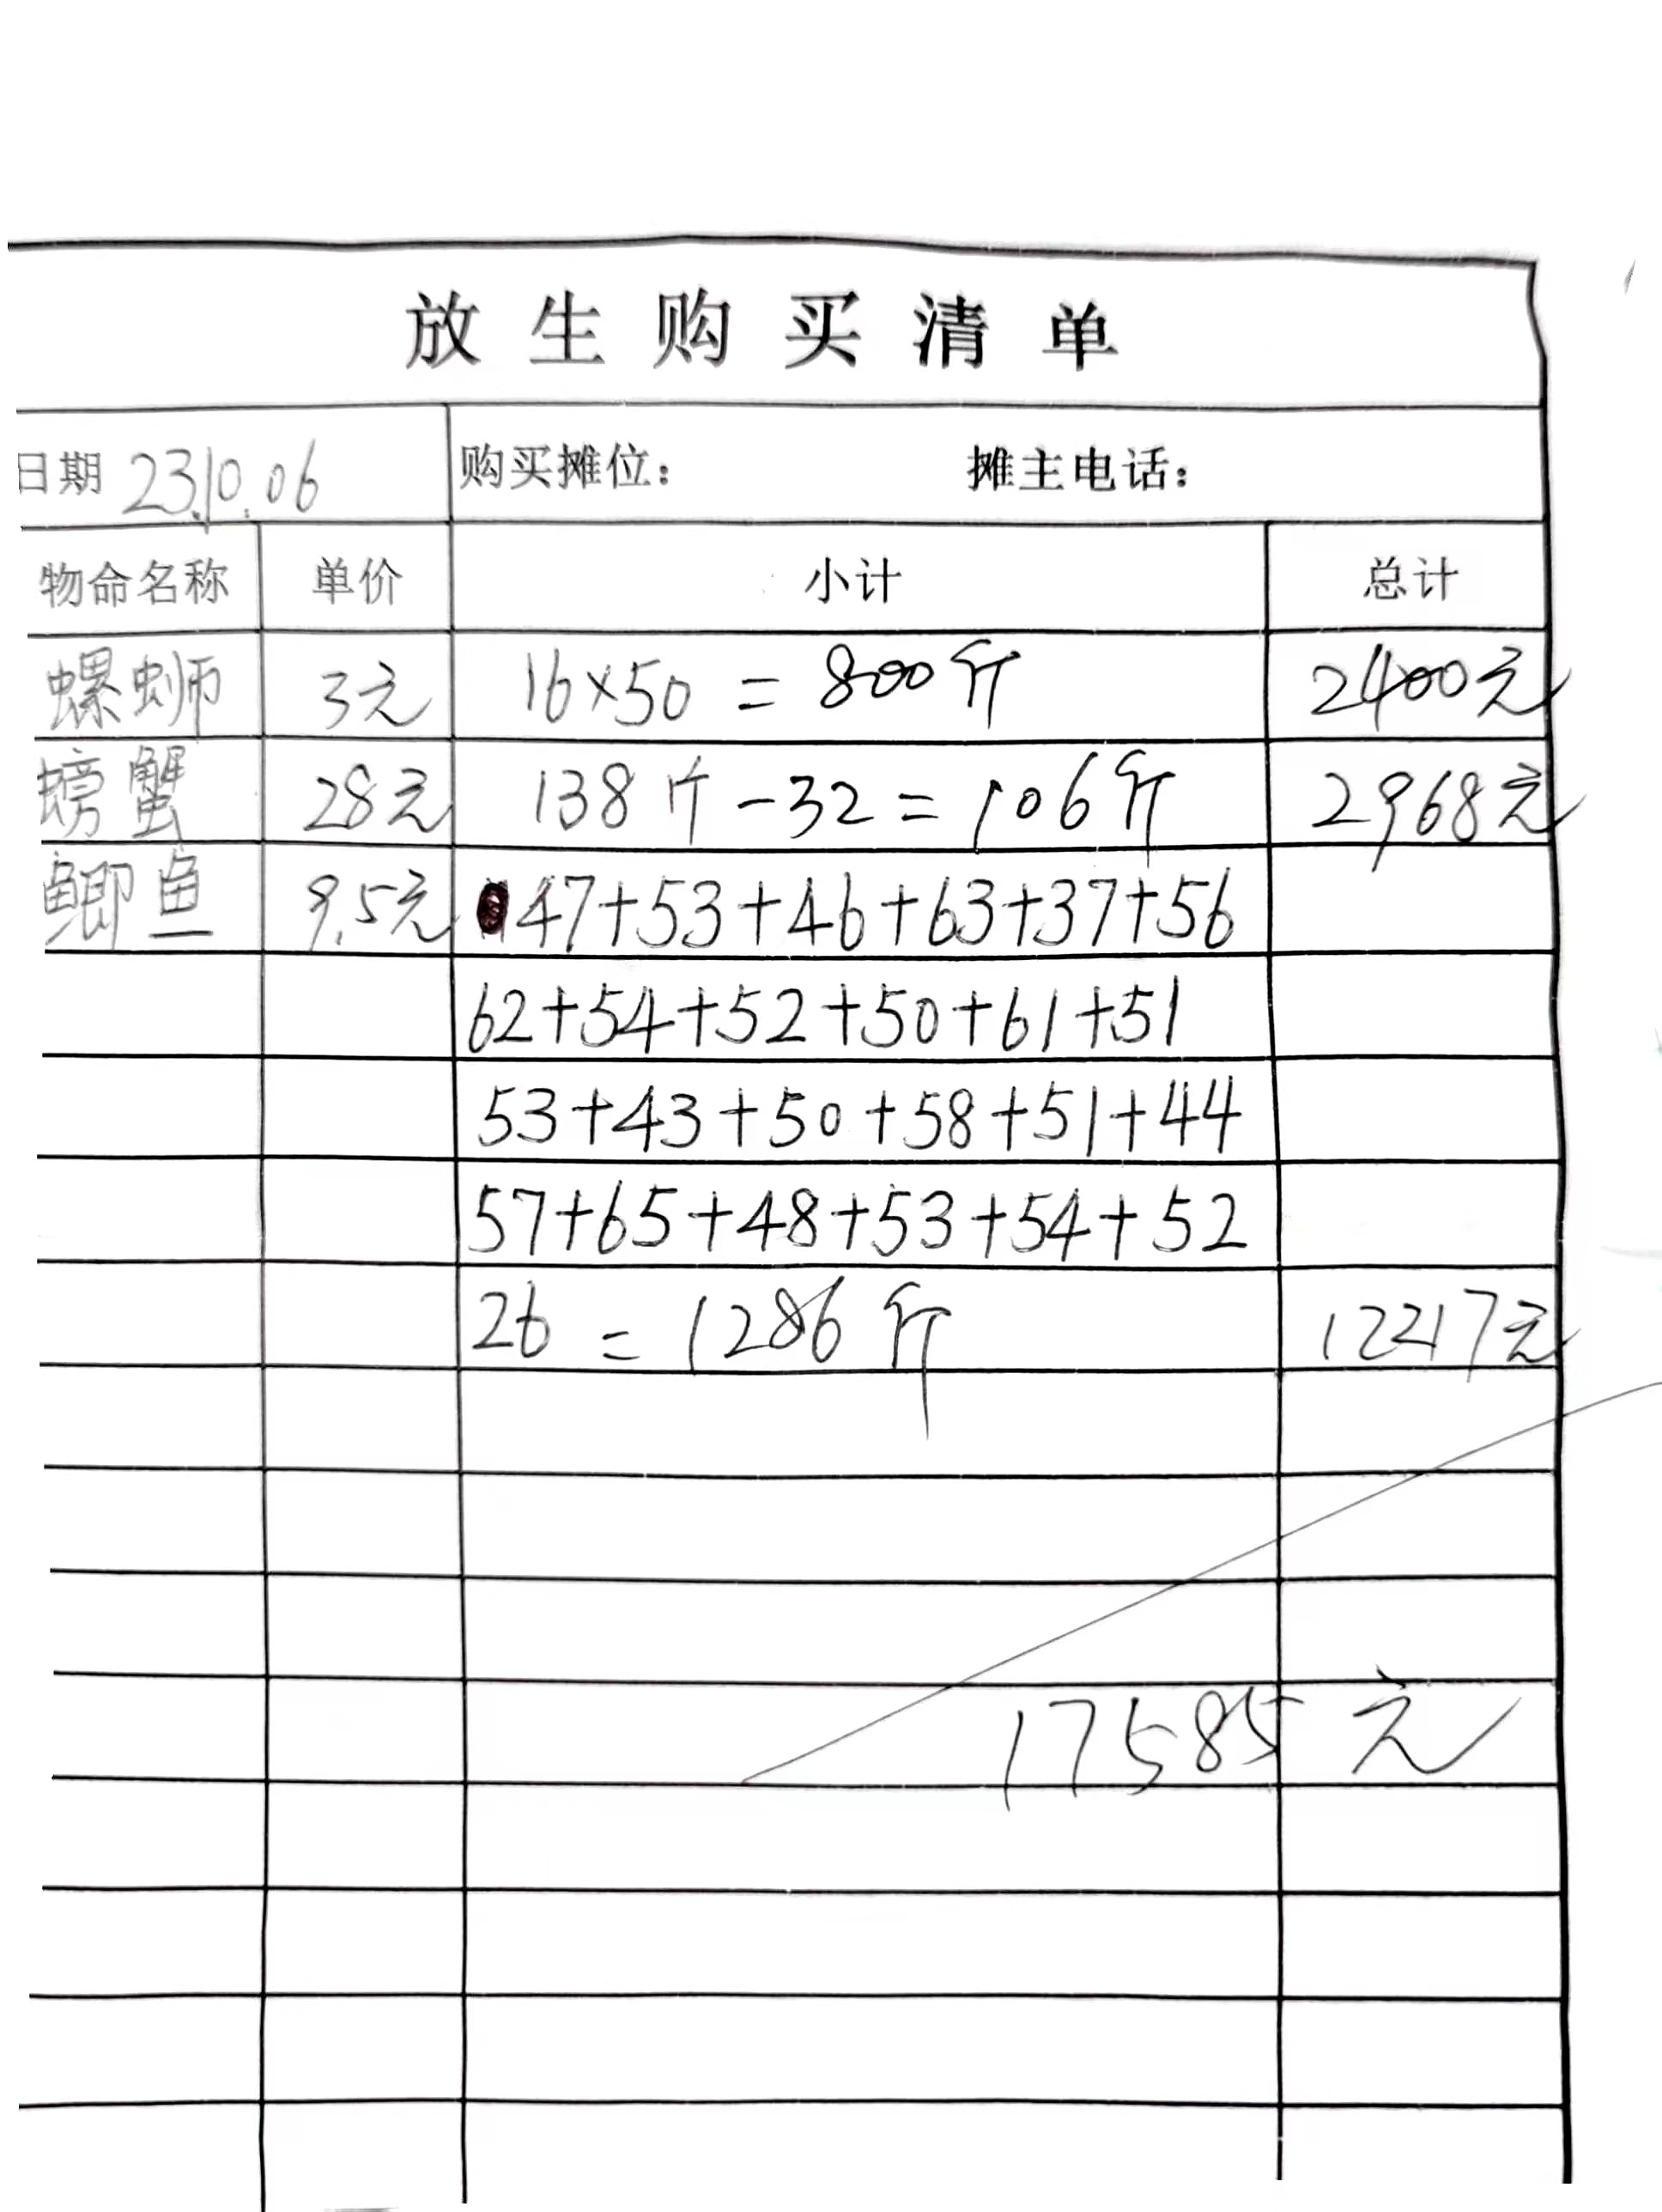 放生购买清单
日期 23.10.06 购买摊位： 摊主电话：
物命名称 单价 小计 总计
螺蛳 3元 16×50 = 800斤 2400元
螃蟹 28元 138斤-32=106斤 2968元
鲫鱼 9.5元 47+53+46+63+37+56
62+54+52+50+61+51
53+43+50+58+51+44
57+65+48+53+54+52
26 = 1286斤 12217元
17585元